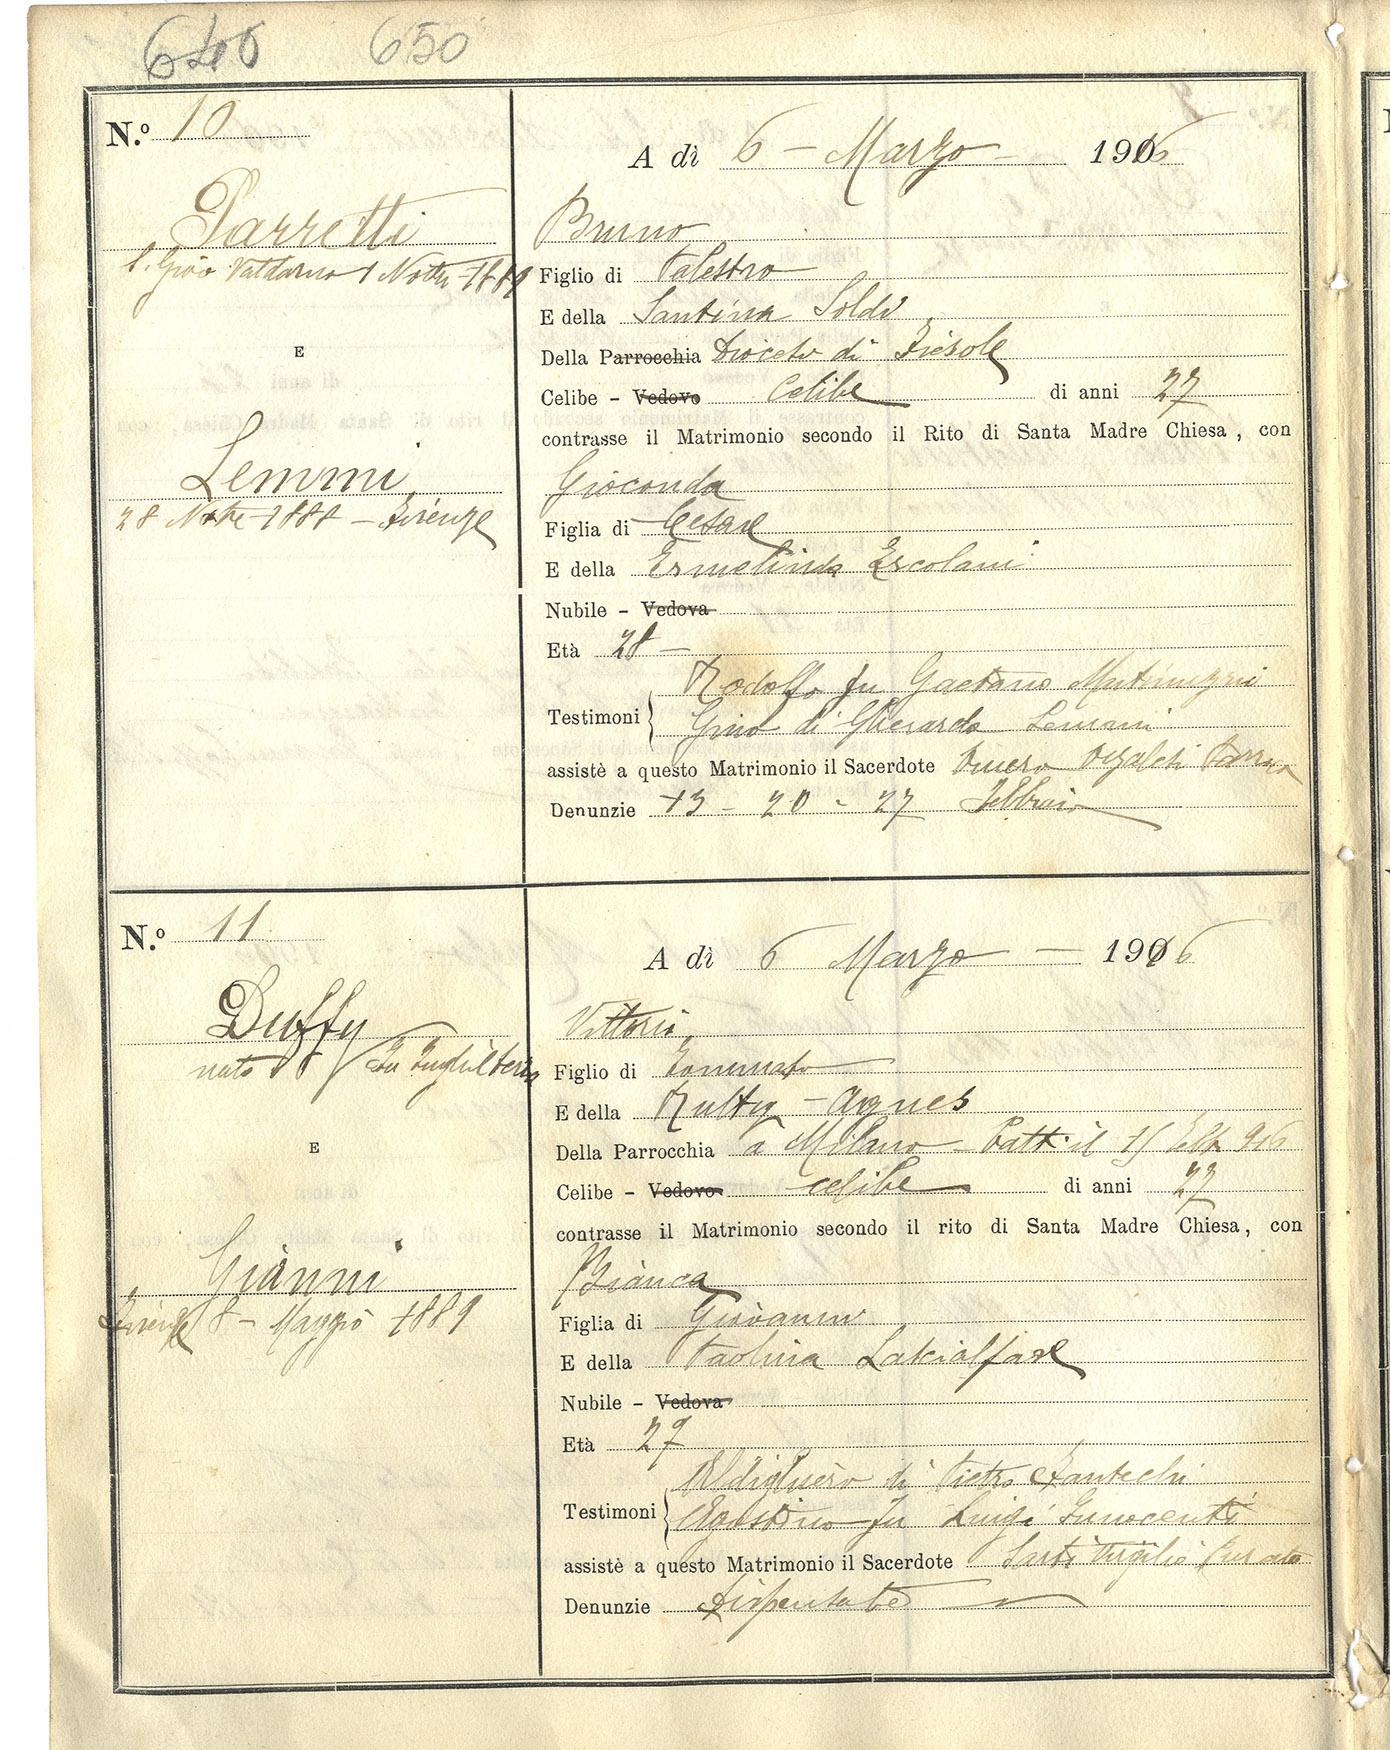 640 650
N.º 10
A dì 6 - Marzo - 1916
Parretti
S. Gio Valdarno 1 Nbre 1889
Bruno
Figlio di Palestro
E della Santina Soldi
Della Parrocchia Diocesi di Fiesole
E
Celibe - Vedovo Celibe di anni 27
contrasse il Matrimonio secondo il Rito di Santa Madre Chiesa, con
Lemmi
Gioconda
28 Nbre 1888 - Firenze
Figlia di Cesare
E della Ermelinda Ercolani
Nubile - Vedova
Età 28 -
Rodolfo fu Gaetano
Testimoni Gino di Gherardo Lemmi
assistè a questo Matrimonio il Sacerdote
Denunzie 13 - 20 - 27 Febbraio
N.º 11
A dì 6 Marzo - 1916
Duffy
Vittorio
nato a in Inghilterra
Figlio di Tommaso
E della Rulty - Agnes
E
Della Parrocchia a Milano - Batt. il 15 Feb 916
Celibe - Vedovo celibe di anni 27
contrasse il Matrimonio secondo il rito di Santa Madre Chiesa, con
Gianni
Bianca
Firenze 8 - Maggio 1889
Figlia di Giovanni
E della Paolina Lascialfare
Nubile - Vedova
Età 27
Aldighiero di Pietro Fantechi
Testimoni Agostino fu Luigi Innocenti
assistè a questo Matrimonio il Sacerdote Sarti Virgilio Curato
Denunzie Dispensate